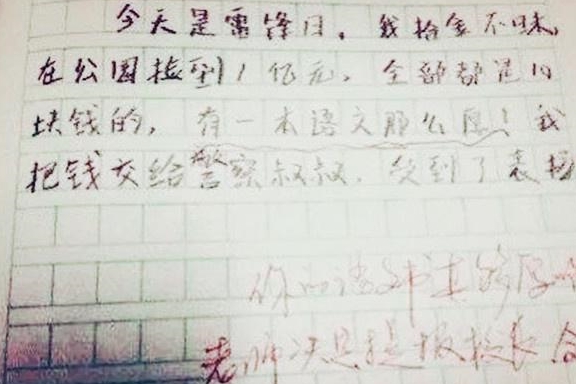 今天是雷锋日，我拾金不昧，
在公园捡到1亿元，全部都是10
块钱的，有一本语文那么厚！我
把钱交给警察叔叔，受到了表扬
你的语文书真够厚
老师决定提报校长